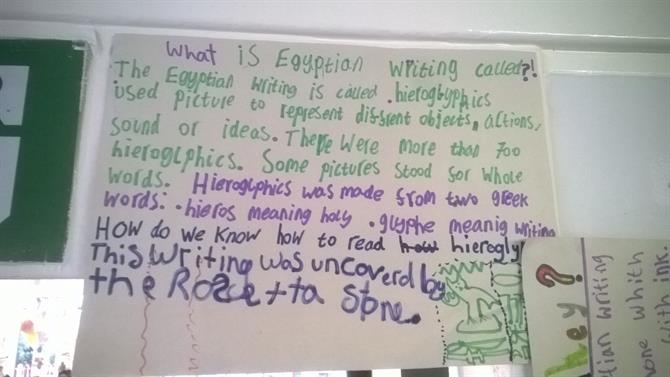 What is Egyptian writing called?!
The Egyptian writing is called .hieroglyphics
used picture to represent different objects, actions,
sound or ideas. There were more than 700
hieroglphics. Some pictures stood for whole
words. Hieroglphics was made from two greek
words: .hieros meaning holy .glyphe meanig writing
How do we know how to read how hierogly
This writing was uncoverd by
the Rosetta stone.
ey?
writing
whith
ink.